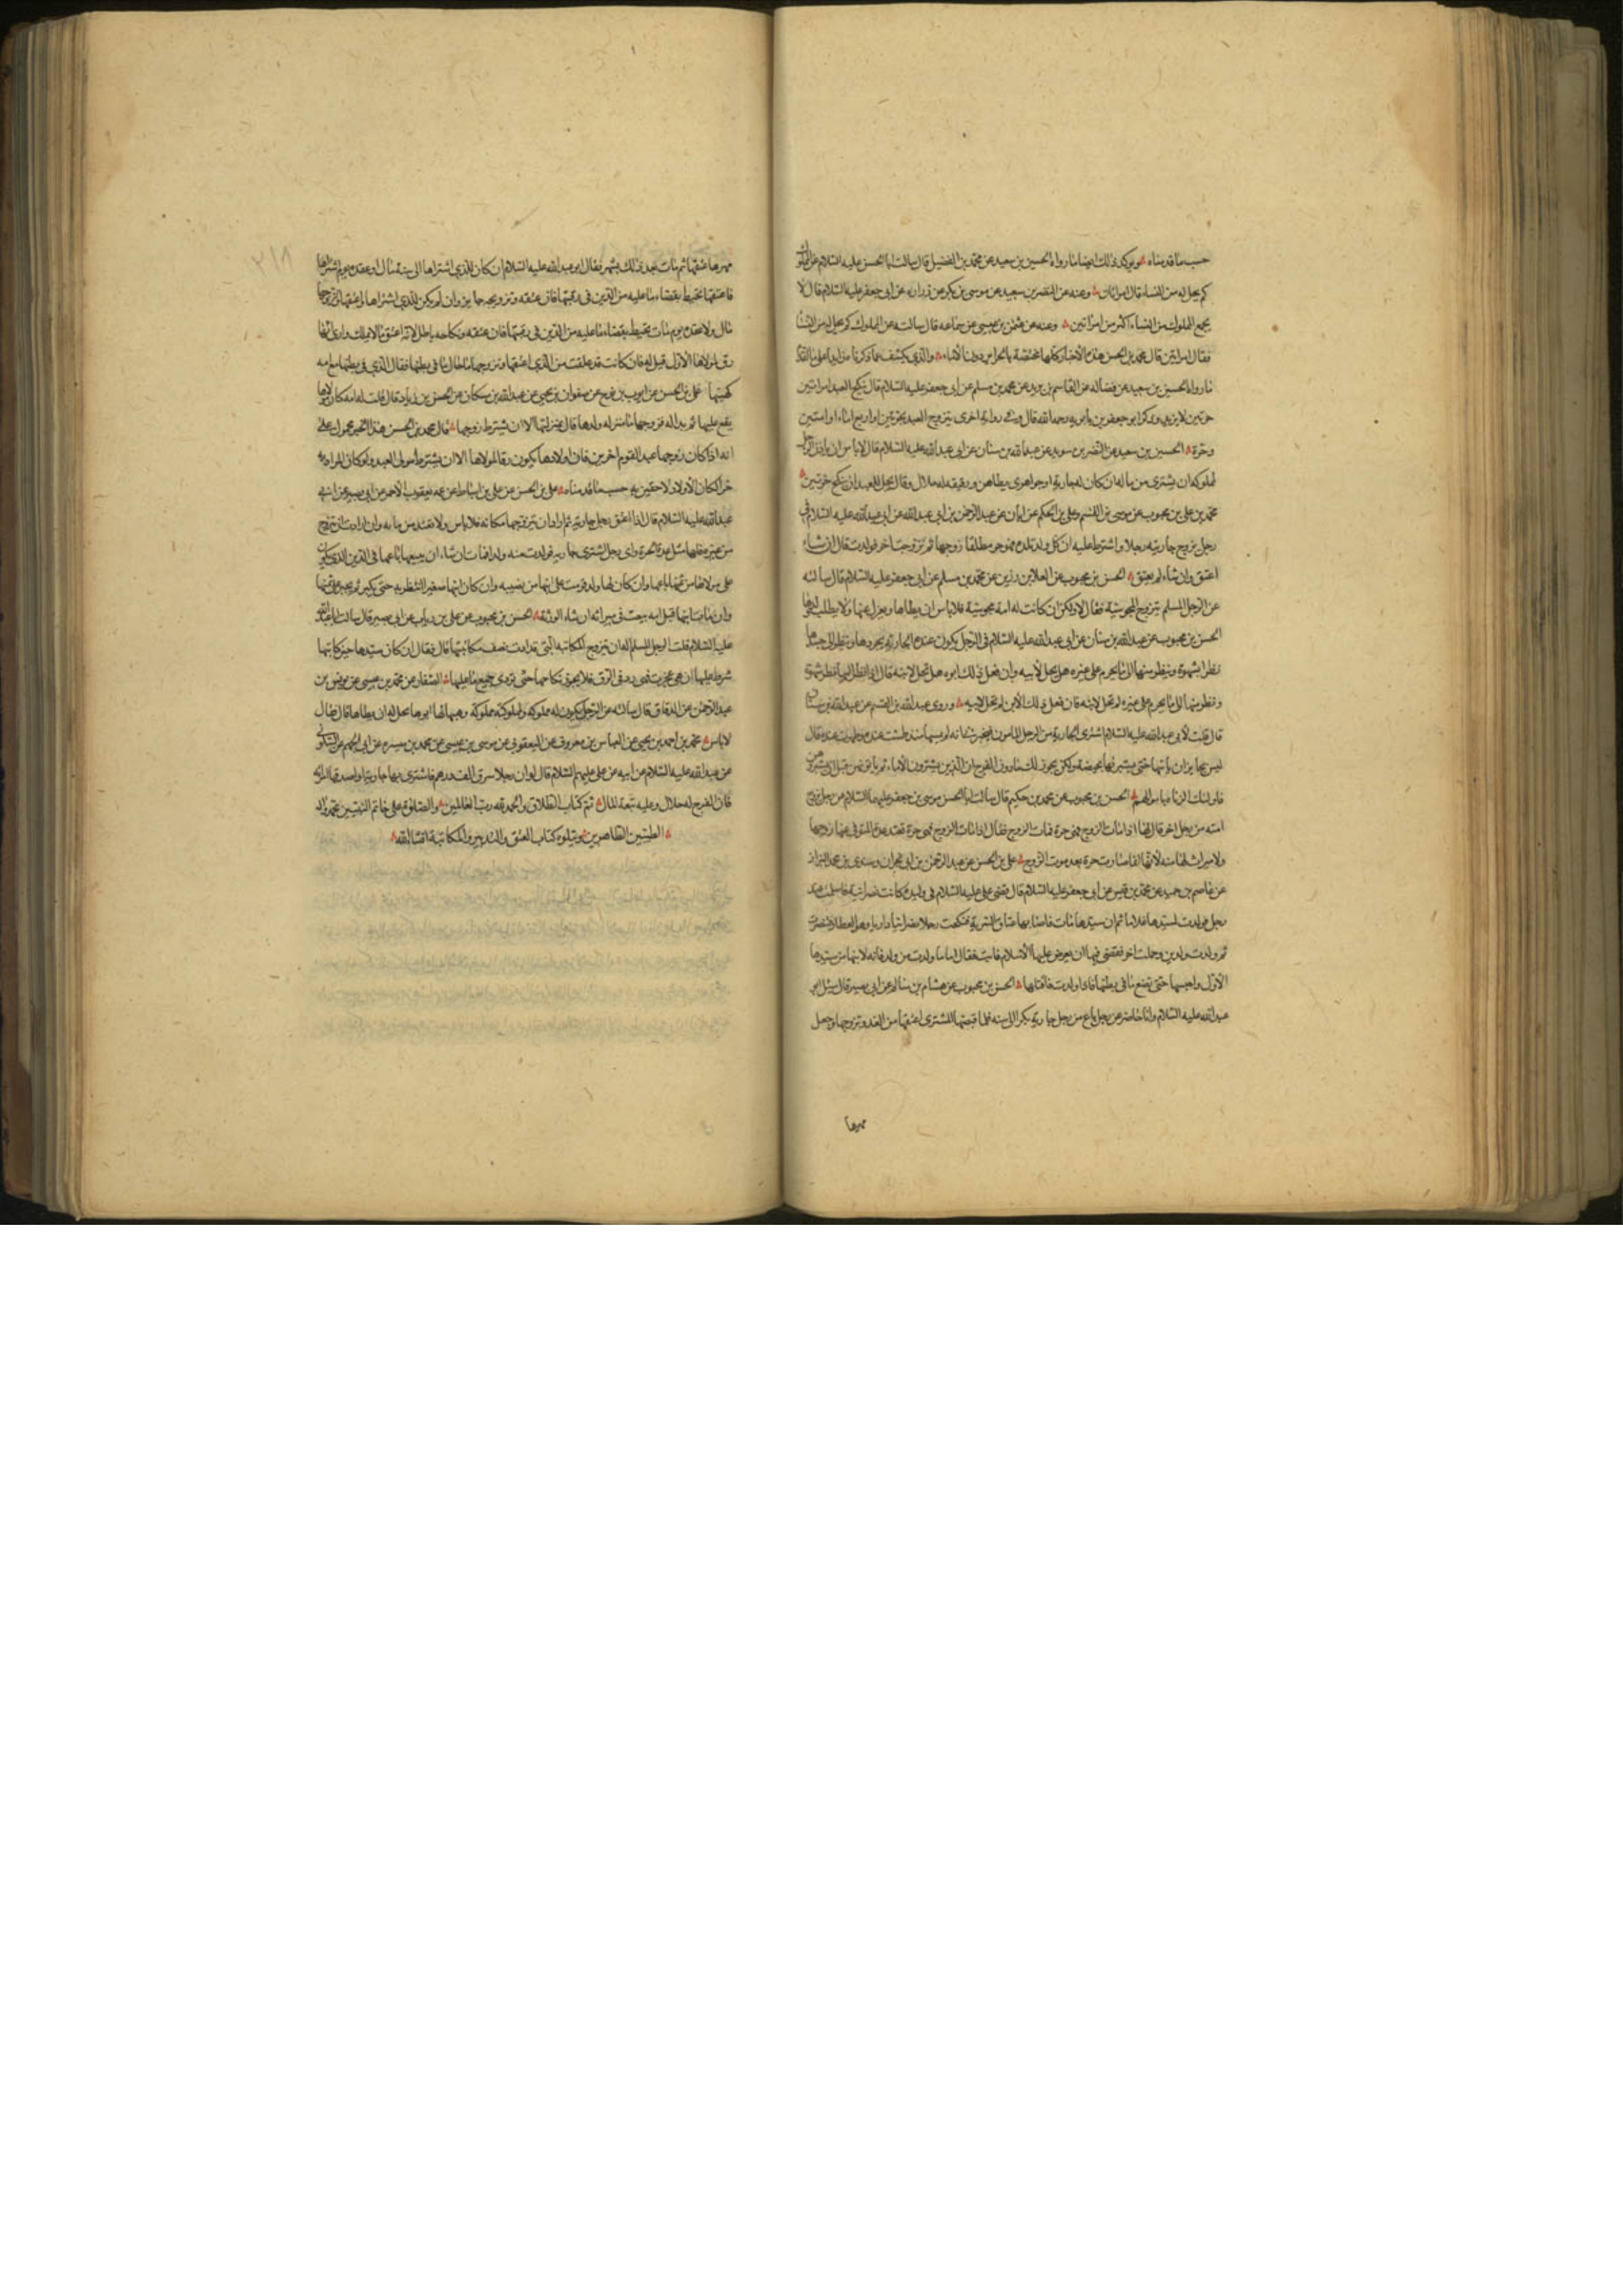 حسب ما قدمناه ويؤكد ذلك ايضا ما رواه الحسين بن سعيد عن محمد بن الفضيل قال سالت ابا الحسن عليه السلام عن المملوك
كم يحل له من النساء قال امراتان وعنه عن النضر بن سعيد عن موسى بن بكر عن زرارة عن ابى جعفر عليه السلام قال لا
يجمع المملوك من النساء اكثر من امراتين وعنه عن عثمن بن عيسى عن سماعه قال سالته عن المملوك كم يحل له من النساء
فقال امراتين قال محمد بن الحسن هذه الأخبار كلها مختصة بالحراير دون الأماء والذى يكشف عما ذكرناه
ما رواه الحسين بن سعيد عن فضاله عن القاسم بن بريد عن محمد بن مسلم عن ابى جعفر عليه السلام قال ينكح العبد امراتين
حرتين لا يزيد وذكر ابو جعفر بن بابويه رحمه الله قال وفى رواية اخرى يتزوج العبد بحرتين او اربع اماء او امتين
وحرة الحسين بن سعيد عن النضر بن سويد عن عبد الله بن سنان عن ابى عبد الله عليه السلام قال لا باس ان ياذن الرجل
لمملوكه ان يشترى من ماله ان كان له جارية او جوارى يطاهن ورقيقه له حلال وقال يحل للعبد ان ينكح حرتين
محمد بن على بن محبوب عن موسى بن القسم وعلى بن الحكم عن ابان عن عبد الرحمن بن ابى عبد الله عن ابى عبد الله عليه السلام فى
رجل يزوج جاريته رجلا واشترط عليه ان كل ولد تلده فهو حر مطلقا زوجها ثم تزوجت اخر فولدت قال ان شاء
اعتق وان شاء لم يعتق الحسن بن محبوب عن العلا بن رزين عن محمد بن مسلم عن ابى جعفر عليه السلام قال سالته
عن الرجل المسلم يتزوج المجوسية فقال لا ولكن ان كانت له امة مجوسية فلا باس ان يطاها ويعزل عنها ولا يطلب ولدها
الحسن بن محبوب عن عبد الله بن سنان عن ابى عبد الله عليه السلام فى الرجل يكون عنده الجارية يجردها وينظر الى جسدها
نظر شهوة وينظر منها الى ما يحرم على غيره هل يحل لأبيه وان فعل ذلك ابوه هل تحل لابنه قال اذا نظر اليها نظر شهوة
ونظر منها الى ما يحرم على غيره لم تحل لابنه فان فعل ذلك الأبن لم تحل لابيه وروى عبد الله بن القسم عن عبد الله بن سنان
قال قلت لأبى عبد الله عليه السلام اشترى الجارية من الرجل المامون فيخبرنى انه لم يمسها منذ طمثت عنده وطهرت عنده قال
ليس بجايز ان ياتيها حتى يستبرئها بحيضة ولكن يجوز لك ما دون الفرج ان الذين يشترون الأماء ثم ياتونهن قبل ان يستبروهن
فاولئك الزناة باموالهم الحسن بن محبوب عن محمد بن حكيم قال سالت ابا الحسن موسى بن جعفر عليهما السلام عن رجل زوج
امته من رجل اخر قال لها اذا مات الزوج فهى حرة فمات الزوج فقال اذا مات الزوج فهى حرة تعتد عدة المتوفى عنها زوجها
ولا ميراث لها منه لأنها انما صارت حرة بعد موت الزوج على بن الحسن عن عبد الرحمن بن ابى نجران وسندى بن محمد البزاز
عن عاصم بن حميد عن محمد بن قيس عن ابى جعفر عليه السلام قال قضى على عليه السلام فى وليدة كانت نصرانية فاسلمت عند
رجل فولدت لسيدها غلاما ثم ان سيدها مات فاصابها عتاق السرية فنكحت رجلا نصرانيا داريا وهو العطار فتنصرت
ثم ولدت ولدين وحملت اخر فقضى فيها ان يعرض عليها الأسلام فابت فقال اما ما ولدت من ولد فانه لابنها من سيدها
الأول واحبسها حتى تضع ما فى بطنها فاذا ولدت فاقتلها الحسن بن محبوب عن هشام بن سالم عن ابى بصير قال سئل ابو
عبد الله عليه السلام وانا حاضر عن رجل باع من رجل جارية بكرا الى سنه فلما قبضها المشترى اعتقها من الغد وتزوجها وجعل
مهرها
٢١٨
مهرها عتقها ثم مات بعد ذلك بشهر فقال ابو عبد الله عليه السلام ان كان للذى اشتراها الى سنة مال او عقده يوم اشتراها
فاعتقها تحيط بقضاء ما عليه من الدين فى رقبتها فان عتقه وتزويجه جايز وان لم يكن للذى اشتراها واعتقها وتزوجها
مال ولا عقده يوم مات تحيط بقضاء ما عليه من الدين فى رقبتها فان عتقه ونكاحه باطل لأنه اعتق ما لا يملك وارى انها
رق لمولاها الأول قيل له فان كانت قد علقت من الذى اعتقها وتزوجها ما حال ما فى بطنها فقال الذى فى بطنها مع امه
كهيئتها على بن الحسن عن ايوب بن نوح عن صفوان بن يحيى عن عبد الله بن مسكان عن الحسن بن زياد قال قلت له امه كان مولاها
يقع عليها ثم بدا له فزوجها ما منزله ولدها قال بمنزلتها الا ان يشترط زوجها قال محمد بن الحسن هذا الخبر محمول على
انه اذا كان زوجها عبد القوم اخرين فان اولادها يكون رقا لمولاها الا ان يشترط مولى العبد ولو كان المراد به
حرا لكان الأولاد لاحقين به حسب ما قدمناه على بن الحسن عن على بن اسباط عن عمه يعقوب الأحمر عن ابى بصير عن ابى
عبد الله عليه السلام قال اذا اعتق رجل جاريته ثم اراد ان يتزوجها مكانه فلا باس ولا تعتد من مائه وان ارادت ان تتزوج
من غيره فلها مثل عدة الحرة واى رجل اشترى جارية فولدت منه ولدا فمات ان شاء ان يبيعها باعها فى الدين الذى يكون
على مولاها من ثمنها باعها وان كان لها ولد قومت على ابنها من نصيبه وان كان ابنها صغيرا انتظر به حتى يكبر ثم يجبر على ثمنها
وان مات ابنها قبل امه بيعت فى ميراثه ان شاء الورثة الحسن بن محبوب عن على بن رياب عن ابى بصير قال سالت ابا عبد الله
عليه السلام قلت الرجل المسلم له ان يتزوج المكاتبه التى قد ادت نصف مكاتبتها قال فقال ان كان سيدها حين كاتبها
شرط عليها ان هى عجزت فهى رد فى الرق فلا يجوز نكاحها حتى تودى جميع ما عليها الصفار عن محمد بن عيسى عن يونس بن
عبد الرحمن عن الدقاق قال سالته عن الرجل يكون له مملوكه ولمملوكته مملوكة وهبها لها ابوها يحل له ان يطاها قال فقال
لا باس محمد بن احمد بن يحيى عن العباس بن معروف عن اليعقوبى عن موسى بن عيسى عن محمد بن ميسره عن ابى الجهم عن السكونى
عن عبد الله عليه السلام عن ابيه عن على عليهم السلام قال لو ان رجلا سرق الف درهم فاشترى بها جارية او اصدقها المراة
فان الفرج له حلال وعليه تبعة المال تم كتاب الطلاق والحمد لله رب العالمين والصلوة على خاتم النبيين محمد واله
الطيبين الطاهرين ويتلوه كتاب العتق والتدبير والمكاتبة انشا الله